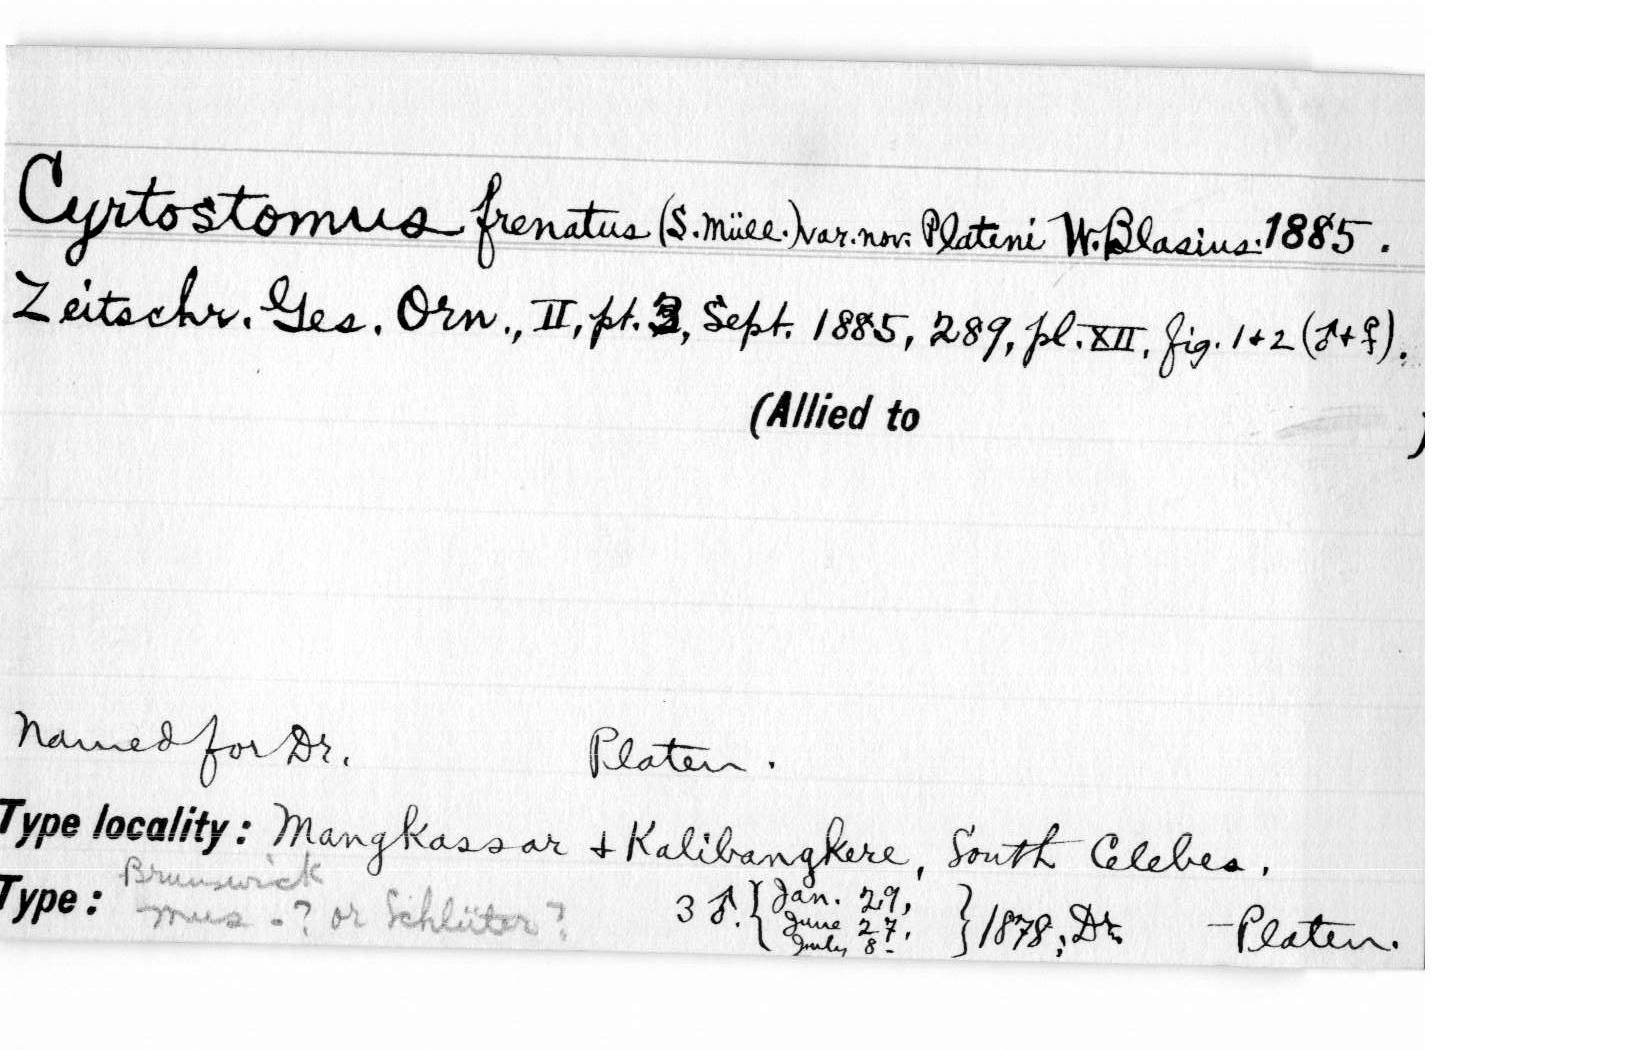 Cyrtostomus frenatus (S. Müll.) var. nov. Plateni W. Blasius. 1885.
Zeitschr. Ges. Orn., II, pt. 3, Sept. 1885, 289, pl. XII, fig. 1+2 (♂+♀).
(Allied to )
Named for Dr. Platen.
Type locality: Mangkassar + Kalibangkere, South Celebes.
Brunswick
Type: Mus. ? or Schlüter? 3 ♂. { Jan. 29,
June 27,
July 8- } 1878, Dr. - Platen.